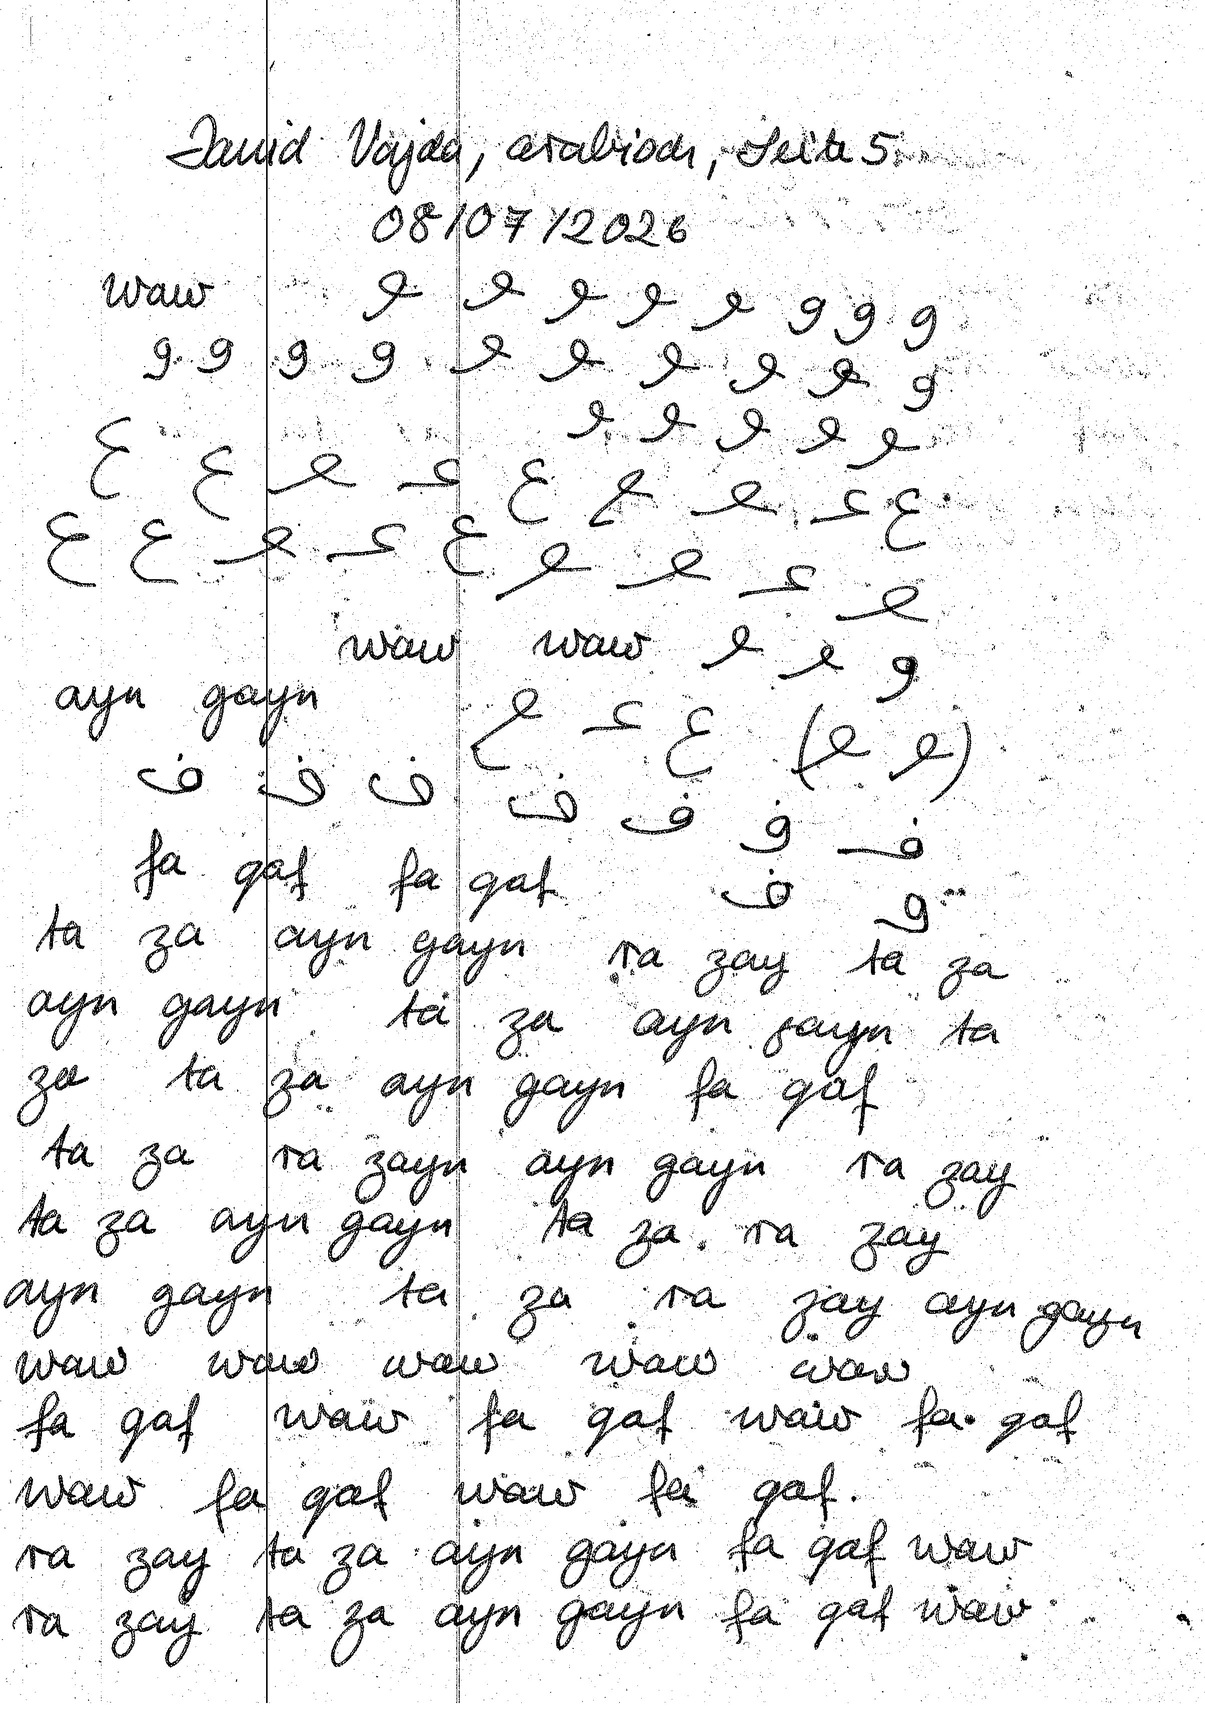 David Vajda, arabisch, Seite 5
08/07/2026
waw و و و و و و و و
و و و و و و و و و و
و و و و و
ع ع ع ع ع
waw waw و و و
ayn gayn
ف ف ف ف ف و ف
fa qaf fa qaf ف و
ta za ayn gayn ra zay ta za
ayn gayn ta za ayn gayn ta
za ta za ayn gayn fa qaf
ta za ra zayn ayn gayn ra zay
ta za ayn gayn ta za ra zay
ayn gayn ta za ra zay ayn gayn
waw waw waw waw waw
fa qaf waw fa qaf waw fa qaf
waw fa qaf waw fa qaf.
ra zay ta za ayn gayn fa qaf waw
ra zay ta za ayn gayn fa qaf waw